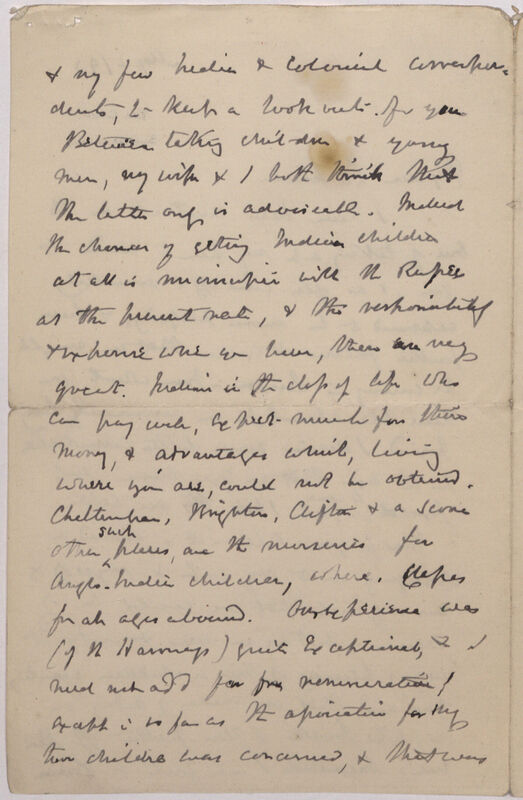 & my few Indian & Colonial correspon-
dents, to keep a look out for you
Between taking children & young
men, my wife & I both think that
the latter only is adviseable. Indeed
the chances of getting Indian children
at all is with the Rupee
at the present rate, & the responsibility
& expense were you have, them are very
great. Indians in the class of life who
can pay well, expect much for their
money, & advantages which, living
where you are, could not be obtained.
Cheltenham, Brighton, Clifton & a score
other such places, are the nurseries for
Anglo-Indian children, where. Classes
for all ages abound. Our experience was
(of the ) quite exceptional, & I
need not add far from remunerative!
except in so far as the association for my
two children was concerned, & that was